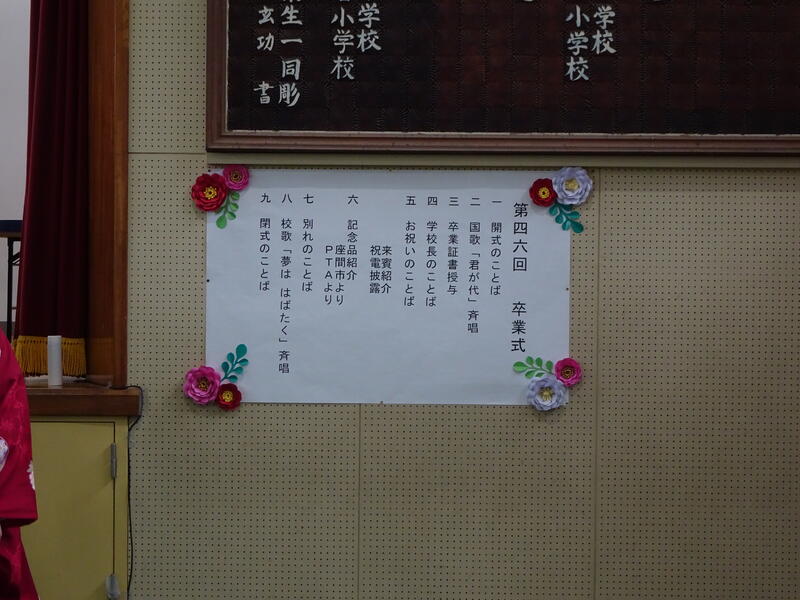 学校
小学校
学校
小学校
生一同彫
玄功 書
第四六回 卒業式
一 開式のことば
二 国歌「君が代」斉唱
三 卒業証書授与
四 学校長のことば
五 お祝いのことば
来賓紹介
祝電披露
六 記念品紹介
座間市より
PTAより
七 別れのことば
八 校歌「夢は はばたく」斉唱
九 閉式のことば